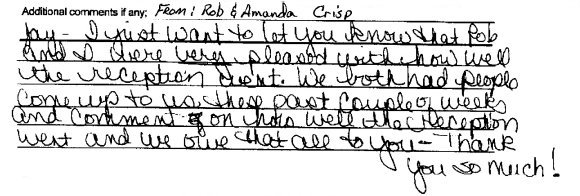 Additional comments if any: From: Rob & Amanda Crisp
Jay - I just want to let you know that Rob
and I were very pleased with how well
the reception went. We both had people
come up to us these past couple of weeks
and comment on how well the reception
went and we owe that all to you - Thank
you so much!